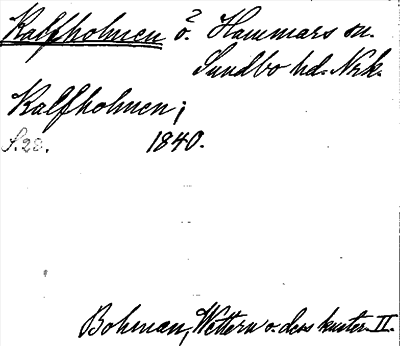 Kalfholmen ö. Hammars sn.
2
Sundbo hd. Nrk.
Kalfholmen;
S.28. 1840.
Bohman, Wettern o. dess kuster. II.